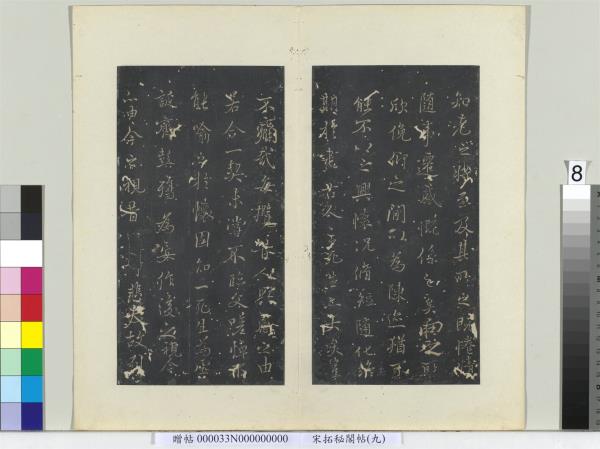 知老之將至及其所之既惓情
隨事遷感慨係之矣向之所
欣俛仰之閒以為陳迹猶不
能不以之興懷況脩短隨化終
期於盡古人云死生亦大矣豈
不痛哉每攬昔人興感之由
若合一契未嘗不臨文嗟悼不
能喻之於懷固知一死生為虛
誕齊彭殤為妄作後之視今
亦由今之視昔 悲夫故列
8
贈帖 000033N000000000 宋拓秘閣帖(九)